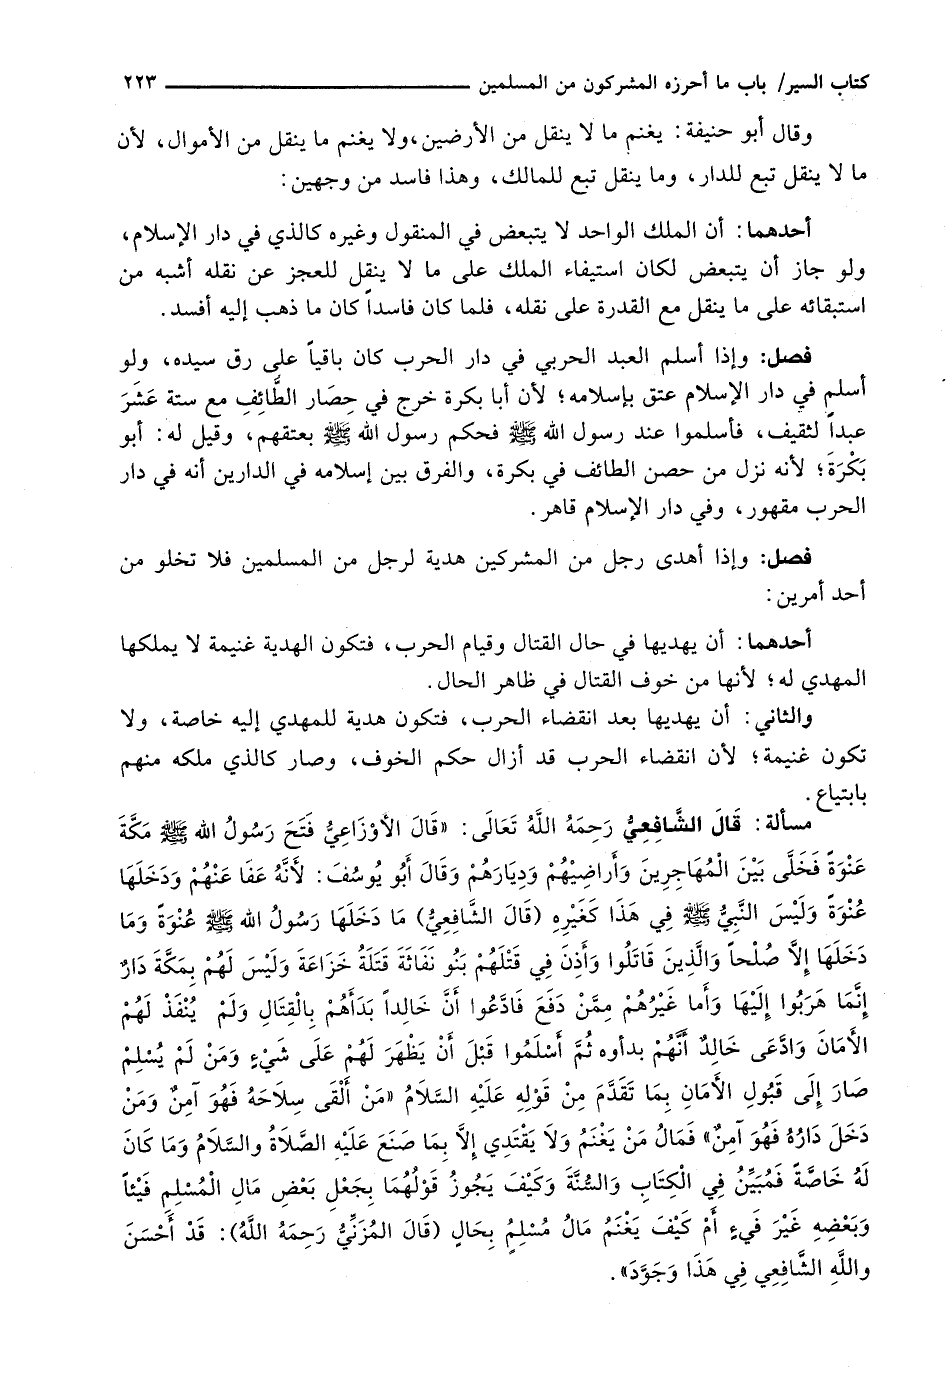 كتاب السير/ باب ما أحرزه المشركون من المسلمين ــــــــــــــــ ٢٢٣
وقال أبو حنيفة: يغنم ما لا ينقل من الأرضين،ولا يغنم ما ينقل من الأموال، لأن
ما لا ينقل تبع للدار، وما ينقل تبع للمالك، وهذا فاسد من وجهين:
أحدهما: أن الملك الواحد لا يتبعض في المنقول وغيره كالذي في دار الإسلام،
ولو جاز أن يتبعض لكان استيفاء الملك على ما لا ينقل للعجز عن نقله أشبه من
استبقائه على ما ينقل مع القدرة على نقله، فلما كان فاسداً كان ما ذهب إليه أفسد.
فصل: وإذا أسلم العبد الحربي في دار الحرب كان باقياً على رق سيده، ولو
أسلم في دار الإسلام عتق بإسلامه؛ لأن أبا بكرة خرج في حِصَار الطَّائِفِ مع ستة عَشَرَ
عبداً لثقيف، فأسلموا عند رسول الله ﷺ فحكم رسول الله ﷺ بعتقهم، وقيل له: أبو
بَكْرَةَ؛ لأنه نزل من حصن الطائف في بكرة، والفرق بين إسلامه في الدارين أنه في دار
الحرب مقهور، وفي دار الإسلام قاهر.
فصل: وإذا أهدى رجل من المشركين هدية لرجل من المسلمين فلا تخلو من
أحد أمرين:
أحدهما: أن يهديها في حال القتال وقيام الحرب، فتكون الهدية غنيمة لا يملكها
المهدي له؛ لأنها من خوف القتال في ظاهر الحال.
والثاني: أن يهديها بعد انقضاء الحرب، فتكون هدية للمهدي إليه خاصة، ولا
تكون غنيمة؛ لأن انقضاء الحرب قد أزال حكم الخوف، وصار كالذي ملكه منهم
بابتياع.
مسألة: قَالَ الشَّافِعِيُّ رَحِمَهُ اللَّهُ تَعَالَى: «قَالَ الأَوْزَاعِيُّ فَتَحَ رَسُولُ الله ﷺ مَكَّةَ
عَنْوَةً فَخَلَّى بَيْنَ الْمُهَاجِرِينَ وَأَرَاضِيْهُمْ وَدِيَارَهُمْ وَقَالَ أَبُو يُوسُفَ: لأَنَّهُ عَفَا عَنْهُمْ وَدَخَلَهَا
عُنْوَةً وَلَيْسَ النَّبِيُّ ﷺ فِي هَذَا كَغَيْرِهِ (قَالَ الشَّافِعِيُّ) مَا دَخَلَهَا رَسُولُ الله ﷺ عُنْوَةً وَمَا
دَخَلَهَا إِلَّا صُلْحاً وَالَّذِينَ قَاتَلُوا وَأَذِنَ فِي قَتْلَهُمْ بَنُو نَفَاثَةَ قَتَلَةُ خَزَاعَةَ وَلَيْسَ لَهُمْ بِمَكَّةَ دَارٌ
إِنَّمَا هَرَبُوا إِلَيْهَا وَأَما غَيْرُهُمْ مِمَّنْ دَفَعَ فَادَّعُوا أَنَّ خَالِداً بَدَأَهُمْ بِالْقِتَالِ وَلَمْ يُنْفَذْ لَهُمْ
الأَمَانَ وَادَّعَى خَالِدٌ أَنَّهُمْ بدأوه ثُمَّ أَسْلَمُوا قَبْلَ أَنْ يَظْهَرَ لَهُمْ عَلَى شَيْءٍ وَمَنْ لَمْ يُسْلِمْ
صَارَ إِلَى قَبُولِ الأَمَانِ بِمَا تَقَدَّمَ مِنْ قَوْلِهِ عَلَيْهِ السَّلَامُ «مَنْ أَلْقَى سِلَاحَهُ فَهُوَ آمِنٌ وَمَنْ
دَخَلَ دَارَهُ فَهُوَ آمِنٌ» فَمَالُ مَنْ يَغْنَمُ وَلَا يَقْتَدِي إِلَّا بِمَا صَنَعَ عَلَيْهِ الصَّلَاةُ والسَّلَامُ وَمَا كَانَ
لَهُ خَاصَّةً فَمُبَيِّنُ فِي الْكِتَابِ وَالسُّنَّةَ وَكَيْفَ يَجُوزُ قَوْلُهُمَا بِجَعْلِ بَعْضِ مَالِ الْمُسْلِمِ فَيْئاً
وَبَعْضِهِ غَيْرَ فَيءٍ أَمْ كَيْفَ يَغْنَمُ مَالُ مُسْلِمٍ بِحَالٍ (قَالَ المُزَنِيُّ رَحِمَهُ اللَّهُ): قَدْ أَحْسَنَ
واللَّهِ الشَّافِعِي فِي هَذَا وَجَوَّدَ».